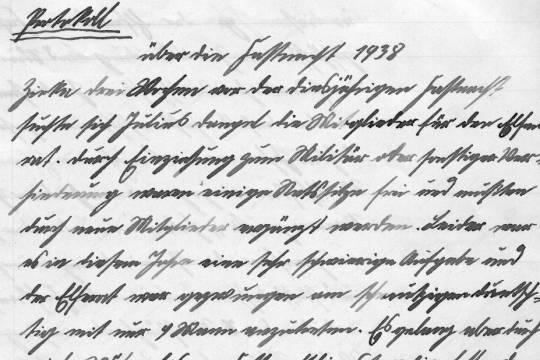 Protokoll
über die Fastnacht 1938
Zirka drei Wochen vor der diesjährigen Fastnacht
suchte sich Julius Dangel die Mitglieder für den Elfer
rat. Durch Einziehung zum Militär oder sonstiger Ver-
hinderung waren einige Ratssitze frei und mußten
durch neue Mitglieder ergänzt werden. Leider war
es in diesem Jahre eine sehr schwierige Aufgabe und
der Elferrat war gezwungen am schmutzigen Dunsch-
tig mit nur 9 Mann anzutreten. Es gelang aber durch